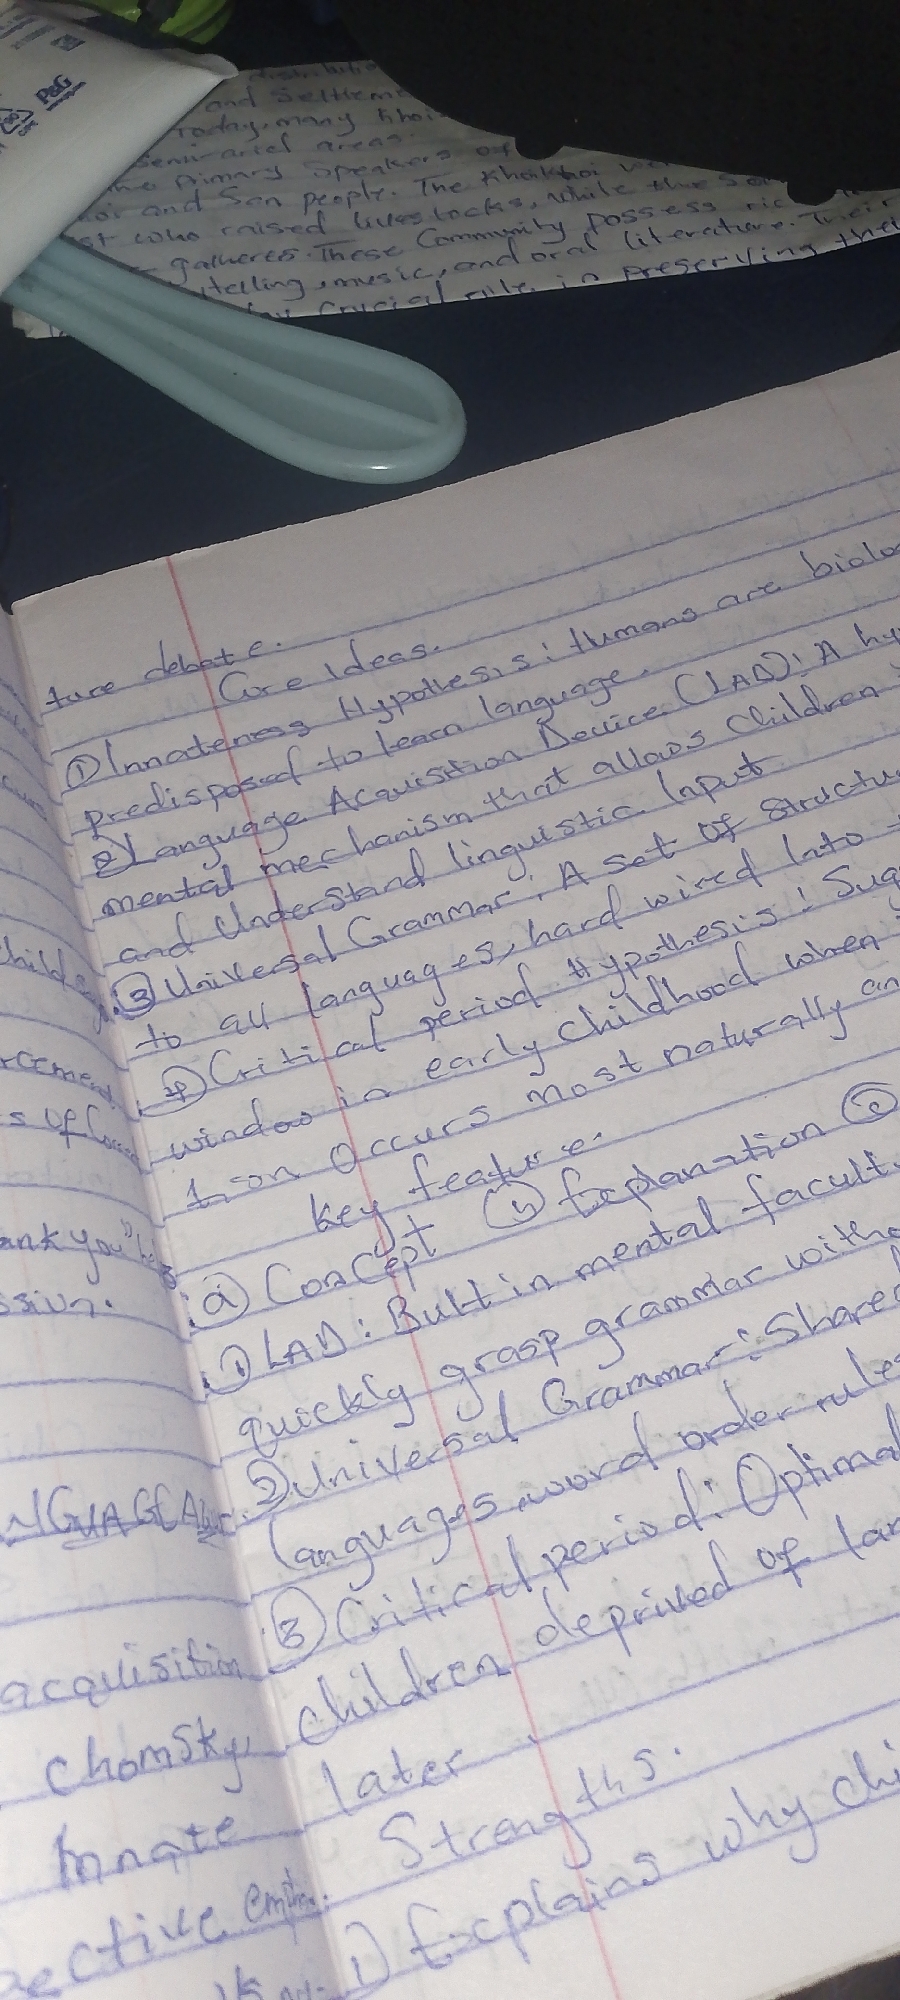 P&G
and Settleme
Today, many Khoi
areas.
Primary Speakers of
and San people. The Khoikhoi
who raised livestocks, while the
gatheres. These Community possess
telling, music, and oral literature. Their
Crucial role in preserving the
ture debate.
Core Ideas.
① Innateness Hypothesis: Humans are biolo
predisposed to learn language.
② Language Acquisition Device (LAD): A hy
mental mechanism that allows children
and Understand linguistic Input
③ Universal Grammar: A set of structu
to all languages, hard wired Into
④ Critical period Hypothesis: Sug
window in early childhood when
tion occurs most naturally an
key feature.
ⓐ Concept ⓑ Explanation ⓒ
① LAD: Built in mental facult
quickly grasp grammar witho
② Universal Grammar: Shared
languages. word order rules
③ Critical period: Optimal
children deprived of lan
later
Strengths.
1) Explains why chi
child
rcement
s of
ank you"
ssion.
acquisition
Chomsky,
Innate
ective